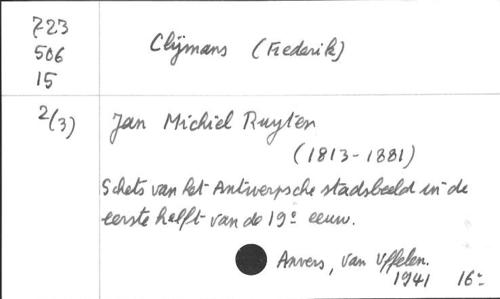 723
506
15
Clijmans (Frederik)
2(3)
Jan Michiel Ruyten
(1813-1881)
Schets van het Antwerpsche stadsbeeld in de
eerste helft van de 19e eeuw.
Anvers, van Uffelen.
1941 16°